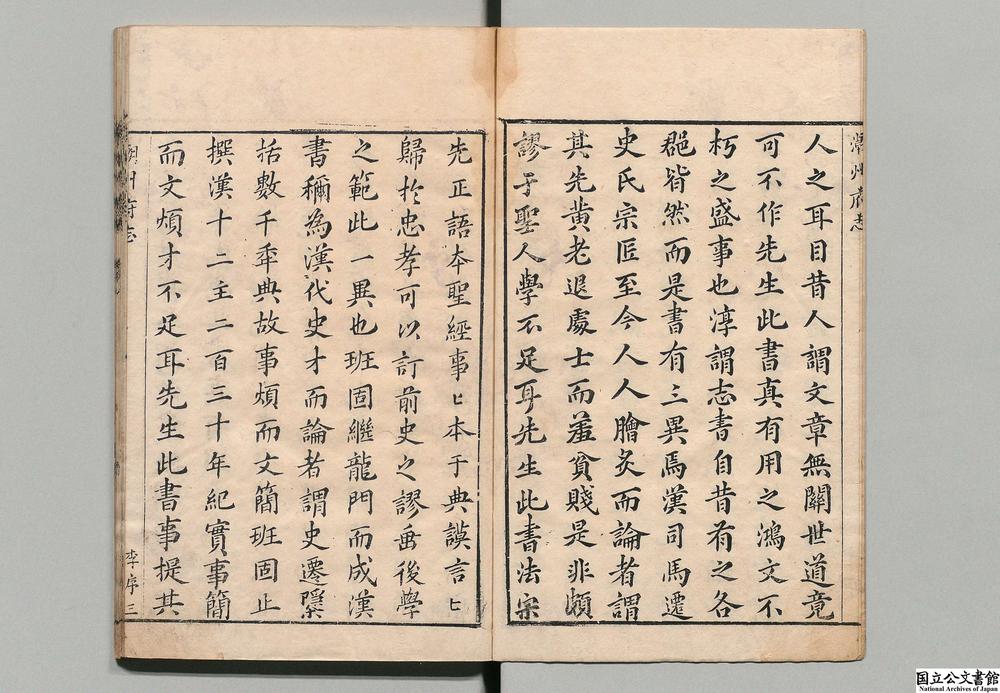 人之耳目昔人謂文章無關世道竟
可不作先生此書真有用之鴻文不
朽之盛事也淳謂志書自昔有之各
郡皆然而是書有三異焉漢司馬遷
史氏宗匠至今人人膾炙而論者謂
其先黃老退處士而羞貧賤是非頗
謬于聖人學不足耳先生此書法宗
先正語本聖經事匕本于典謨言匕
歸於忠孝可以訂前史之謬垂後學
之範此一異也班固繼龍門而成漢
書稱為漢代史才而論者謂史遷檃
括數千年典故事煩而文簡班固止
撰漢十二主二百三十年紀實事簡
而文煩才不足耳先生此書事提其
州府志
李序 三
国立公文書館
National Archives of Japan